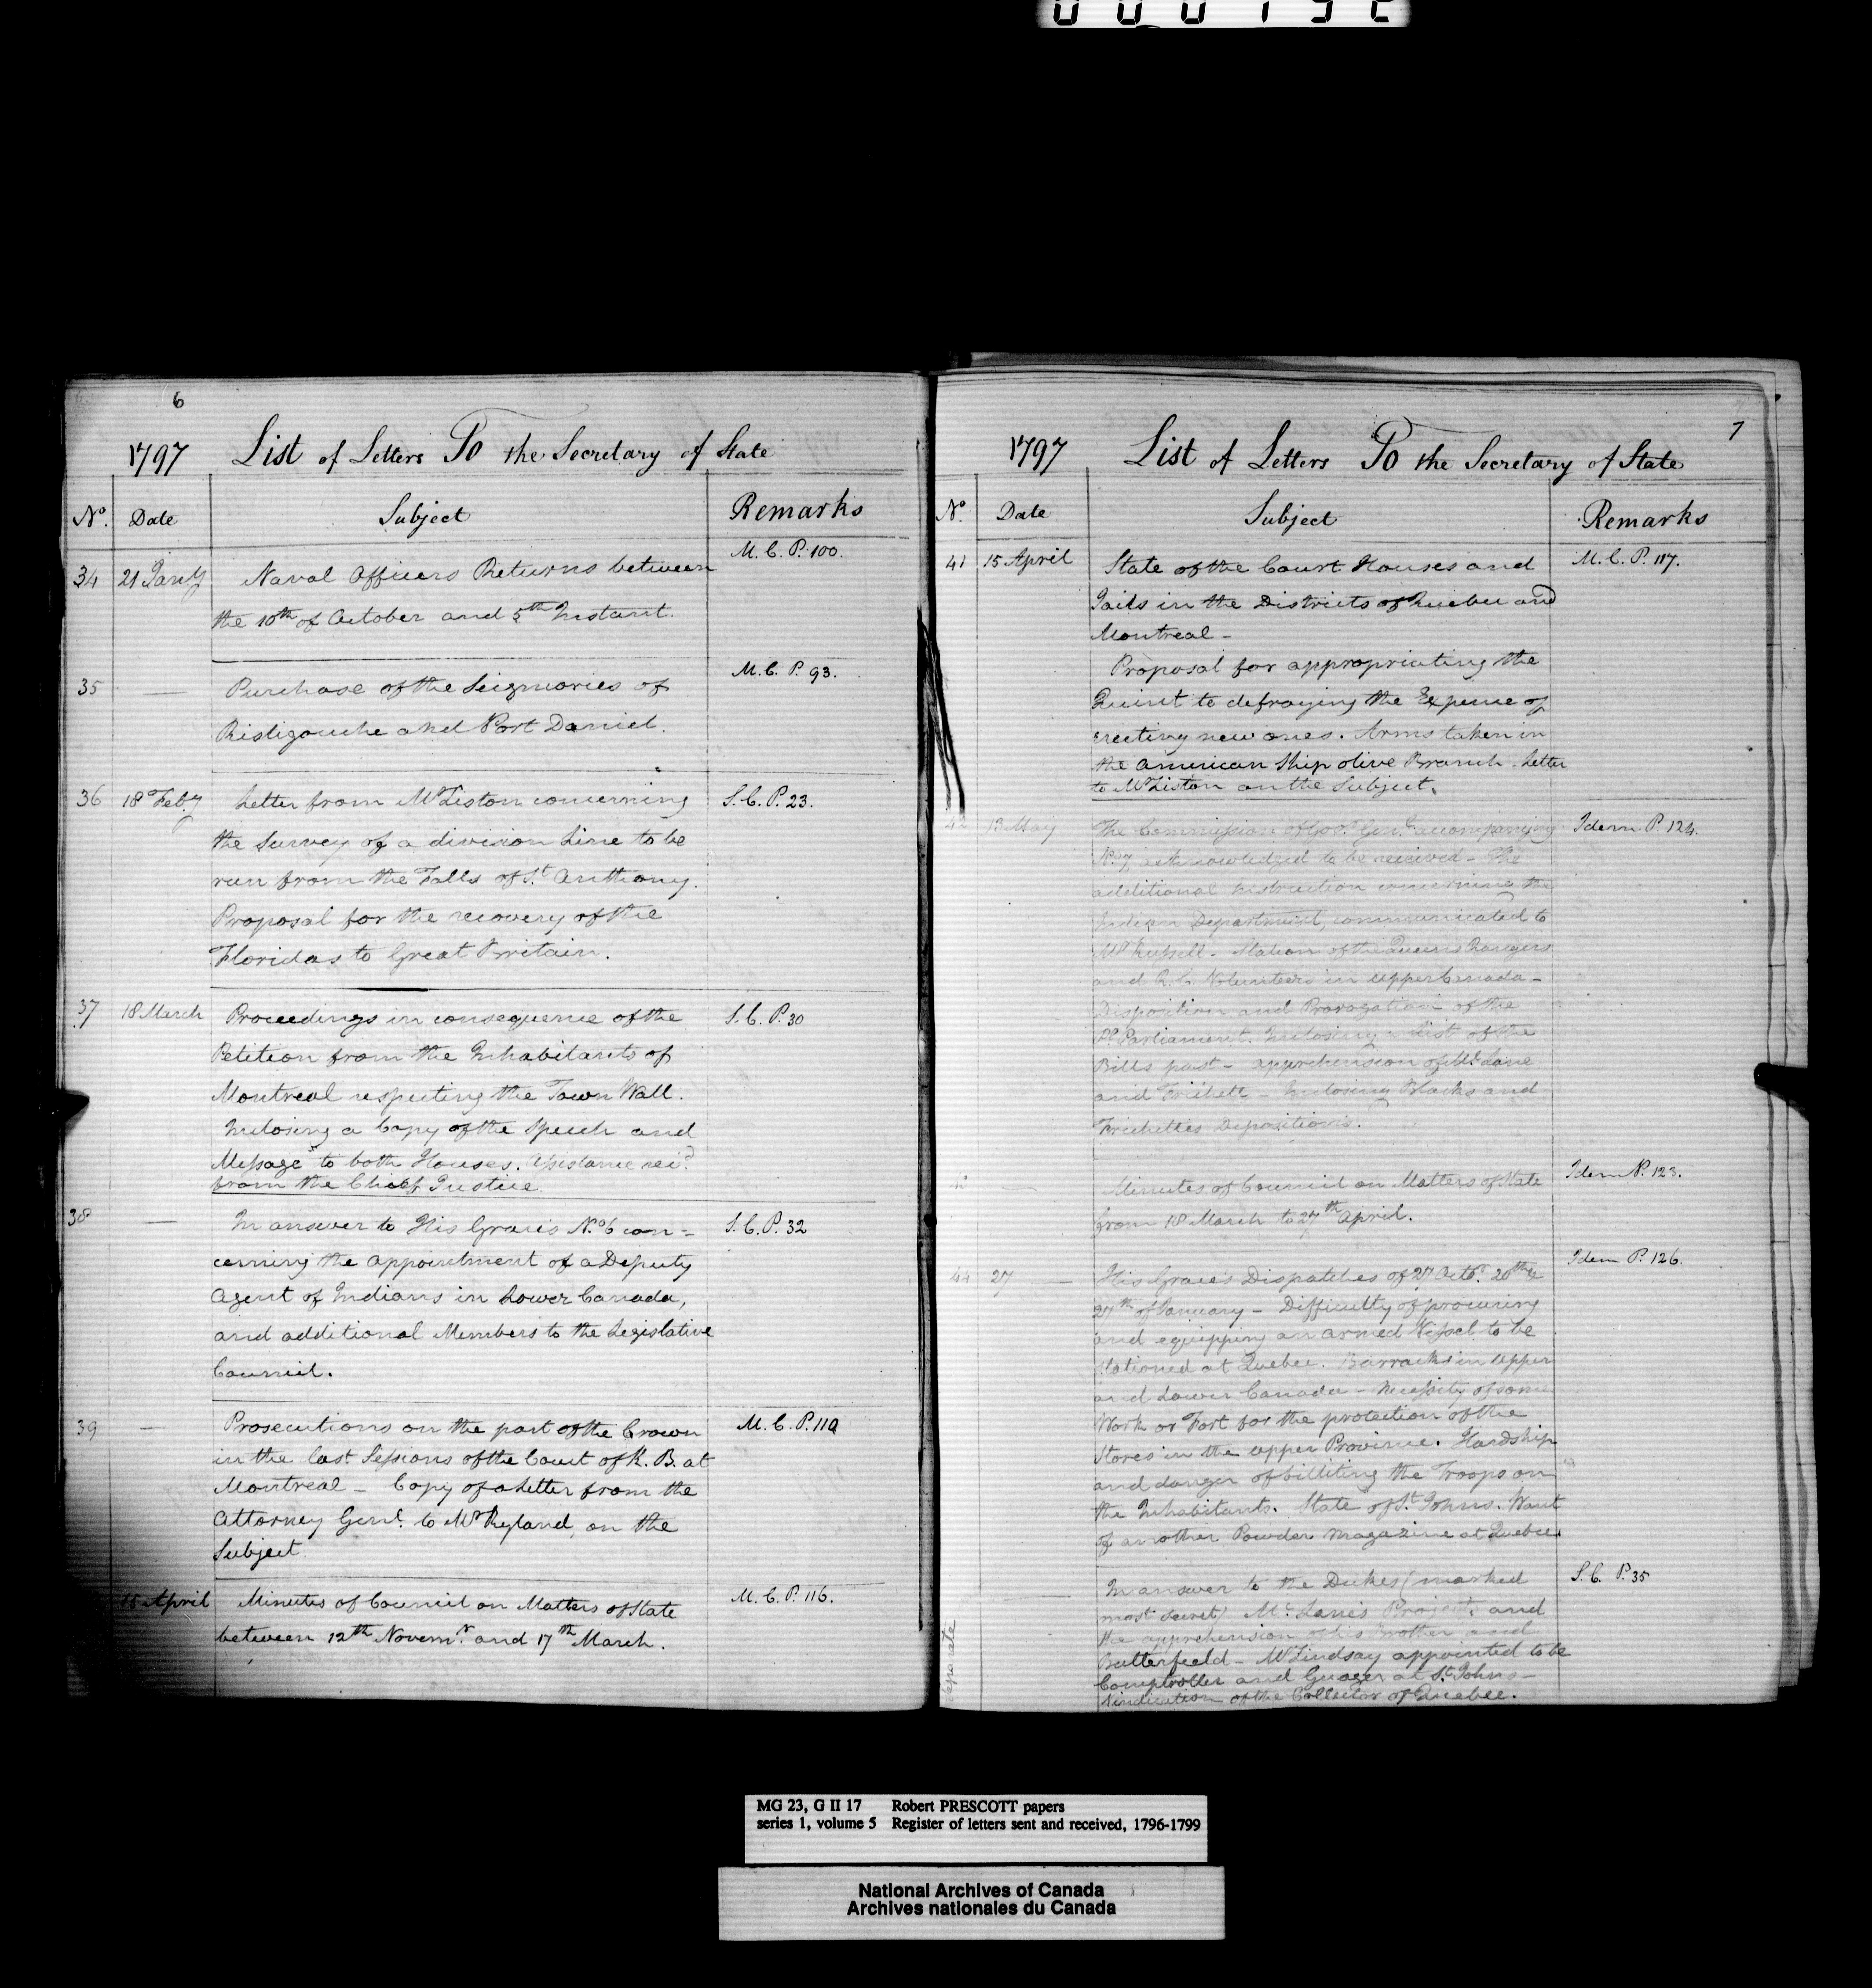 6
1797 List of Letters To the Secretary of State
No. Date Subject Remarks
34 21 Jany Naval Officers Returns between M. C. P. 100.
the 10th of October and 5th Instant.
35 — Purchase of the Seigniories of M. C. P. 93.
Ristigouche and Port Daniel.
36 18 Feby Letter from Mr Liston concerning S. C. P. 23.
the Survey of a division Line to be
run from the Falls of St. Anthony.
Proposal for the recovery of the
Floridas to Great Britain.
37 18 March Proceedings in consequence of the S. C. P. 30
Petition from the Inhabitants of
Montreal respecting the Town Wall.
Inclosing a Copy of the Speech and
Messages to both Houses. Assistance recd.
from the Chief Justice
38 — In answer to His Grace's No. 6 con= S. C. P. 32
cerning the appointment of a Deputy
Agent of Indians in Lower Canada,
and additional Members to the Legislative
Council.
39 — Prosecutions on the part of the Crown M. C. P. 110
in the last Sessions of the Court of K. B. at
Montreal – Copy of a Letter from the
Attorney Genl. to Mr Ryland, on the
Subject
15 April Minutes of Council on Matters of State M. C. P. 116.
between 12th Novemr. and 17th March.
7
1797 List of Letters To the Secretary of State
No. Date Subject Remarks
41 15 April State of the Court Houses and M. C. P. 117.
Jails in the Districts of Quebec and
Montreal –
Proposal for appropriating the
Quint to defraying the Expence of
erecting new ones. Arms taken in
the American Ship Olive Branch – Letter
to Mr Liston on the Subject.
42 13 May The Commission of Govr. Genl. accompanying Idem P. 124.
No. 7, acknowledged to be received – The
additional Instruction concerning the
Indian Department, communicated to
Mr Russell – Station of the Queens Rangers
and R. C. Volunteers in Upper Canada –
Disposition and Prorogation of the
Pl. Parliament. Inclosing a List of the
Bills past – apprehension of Mc Lane
and Frichett – Inclosing Blacks and
Frichettes Depositions.
43 — Minutes of Council on Matters of State Idem P. 123.
from 18 March to 27th April.
44 27 — His Grace's Dispatches of 27 Octr. 20th &
27th of January – Difficulty of procuring Idem P. 126.
and equipping an armed Vessel to be
stationed at Quebec. Barracks in Upper
and Lower Canada – Necessity of some
Work or Fort for the protection of the
Stores in the Upper Province. Hardship
and danger of billiting the Troops on
the Inhabitants. State of St. Johns. Want
of another Powder Magazine at Quebec
Separate — In answer to the Dukes (marked S. C. P. 35
most secret) Mc Lane's Project, and
the apprehension of his Brother and
Butterfield – Mr Lindsay appointed to be
Comptroller and Guager at St. Johns –
Vindication of the Collector of Quebec.
MG 23, G II 17 Robert PRESCOTT papers
series 1, volume 5 Register of letters sent and received, 1796-1799
National Archives of Canada
Archives nationales du Canada